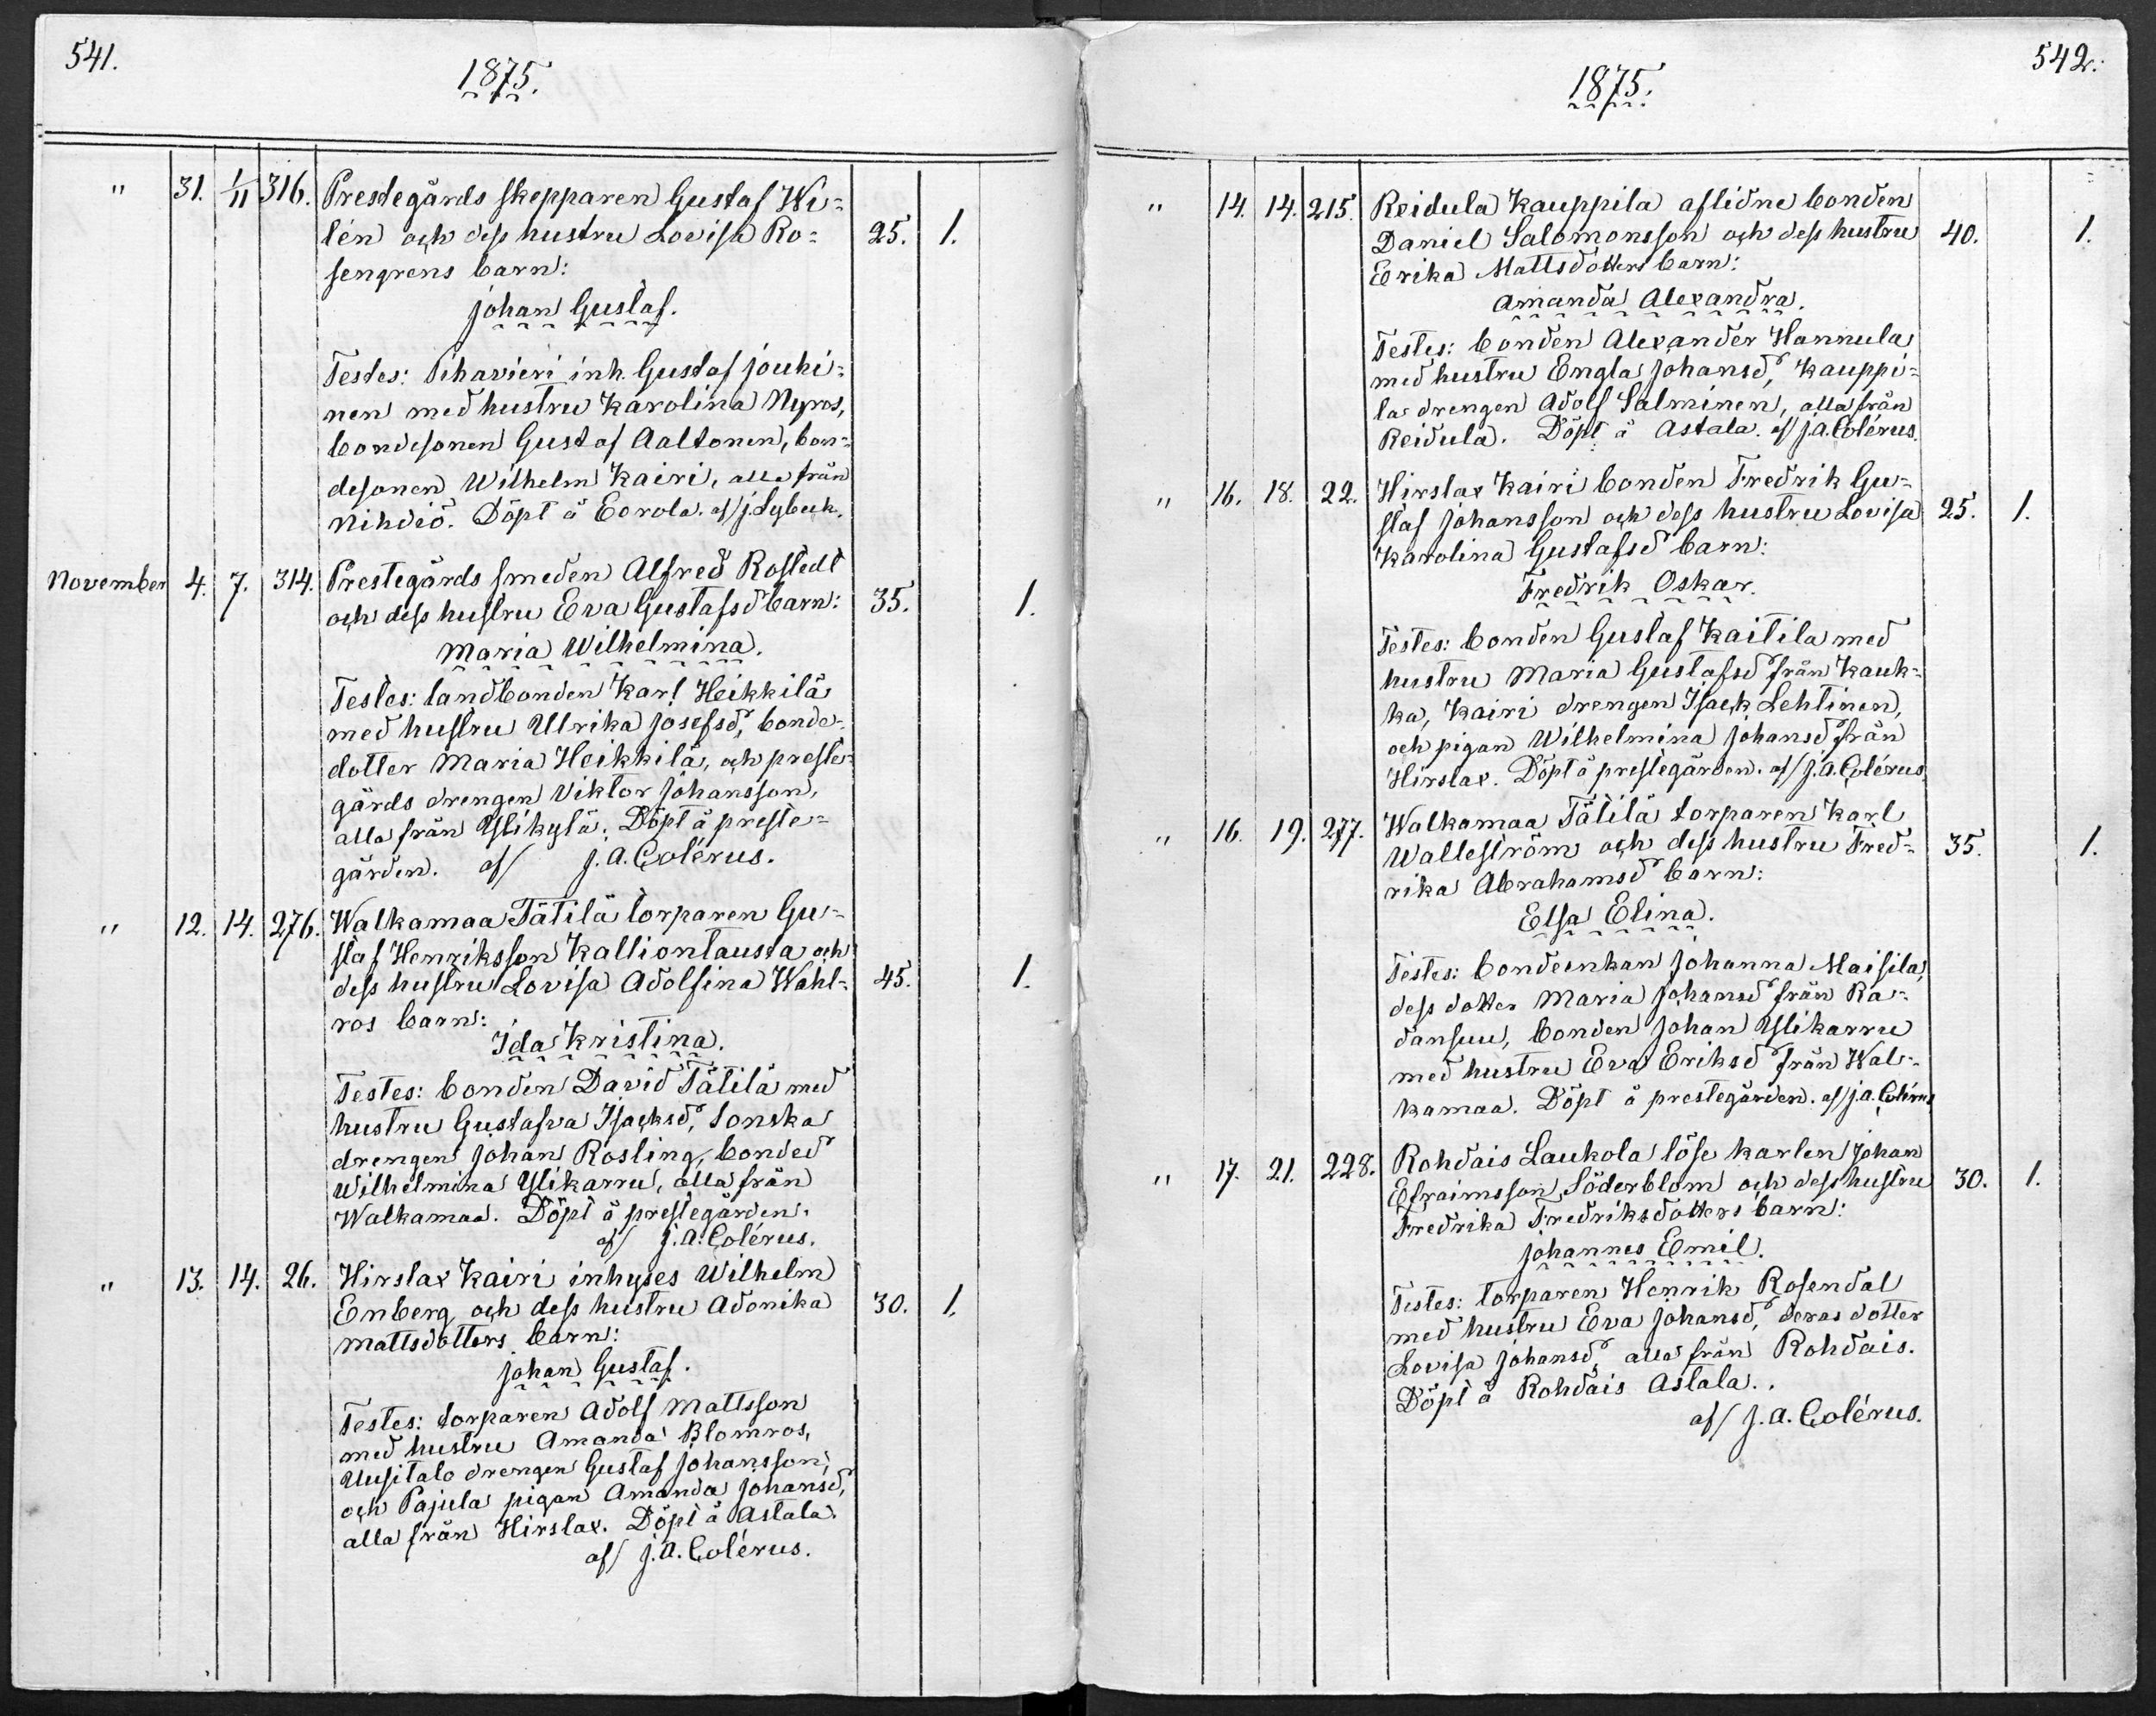 541.
1875.
" 31. 1/11 316. Prestegårds skepparen Gustaf We-
lén och dess hustru Lovisa Ro- 25. 1.
sengrens barn:
Johan Gustaf.
Testes: Pihavieri inh. Gustaf Jouhi-
nen med hustru Karolina Nyros,
bondesonen Gustaf Aaltonen, bon-
desonen Wilhelm Kairi, alla från
Nihdiö. Döpt å Eerola. af/ J. Lybeck.
November 4. 7. 314. Prestegårds smeden Alfred Rostedt
och dess hustru Eva Gustafsd barn: 35. 1.
Maria Wilhelmina.
Testes: landbonden Karl Heikkilä
med hustru Ulrika Josefsd, bonde-
dotter Maria Heikkilä, och preste-
gårds drengen Viktor Johansson,
alla från Ylikylä. Döpt å preste-
gården. af/ J. A. Colérus.
" 12. 14. 276. Walkamaa Tätilä torparen Gu-
staf Henriksson Kalliontausta och
dess hustru Lovisa Adolfina Wahl- 45. 1.
ros barn:
Ida Kristina.
Testes: bonden David Tätilä med
hustru Gustafva Isacksd, Sonska
drengen Johan Rosling, bonded
Wilhelmina Ylikarru, alla från
Walkamaa. Döpt å prestegården.
af/ J. A. Colérus.
" 13. 14. 26. Hirslax Kairi inhyses Wilhelm
Enberg och dess hustru Adonika 30. 1.
Mattsdotters barn:
Johan Gustaf.
Testes: torparen Adolf Mattsson
med hustru Amanda Blomros,
Uusitalo drengen Gustaf Johansson,
och Pajula pigan Amanda Johansd,
alla från Hirslax. Döpt å Astala.
af/ J. A. Colérus.
542.
1875.
" 14. 14. 215. Reidula Kauppila aflidne bonden
Daniel Salomonsson och dess hustru 40. 1.
Erika Mattsdotters barn:
Amanda Alexandra.
Testes: bonden Alexander Hannula
med hustru Engla Johansd, Kauppi-
la drengen Adolf Salminen, alla från
Reidula. Döpt å Astala. af/ J. A. Colérus.
" 16. 18. 22. Hirslax Kairi bonden Fredrik Gu-
staf Johansson och dess hustru Lovisa 25. 1.
Karolina Gustafsd barn:
Fredrik Oskar.
Testes: bonden Gustaf Kaitila med
hustru Maria Gustafsd från Kauk-
ka, Kairi drengen Isack Lehtinen,
och pigan Wilhelmina Johansd från
Hirslax. Döpt å prestegården. af/ J. A. Colérus.
" 16. 19. 277. Walkamaa Tätilä torparen Karl
Walleström och dess hustru Fred- 35. 1.
rika Abrahamsd barn:
Elsa Elina.
Testes: bondeenkan Johanna Maisila,
dess dotter Maria Johansd från Ra-
dansuu, bonden Johan Ylikarru
med hustru Eva Eriksd från Wal-
kamaa. Döpt å prestegården. af/ J. A. Colérus
" 17. 21. 228. Rohdais Laukola löse karlen Johan
Efraimsson Söderblom och dess hustru 30. 1.
Fredrika Fredriksdotters barn:
Johannes Emil.
Testes: torparen Henrik Rosendal
med hustru Eva Johansd, deras dotter
Lovisa Johansd, alla från Rohdais.
Döpt å Rohdais Astala.
af/ J. A. Colérus.